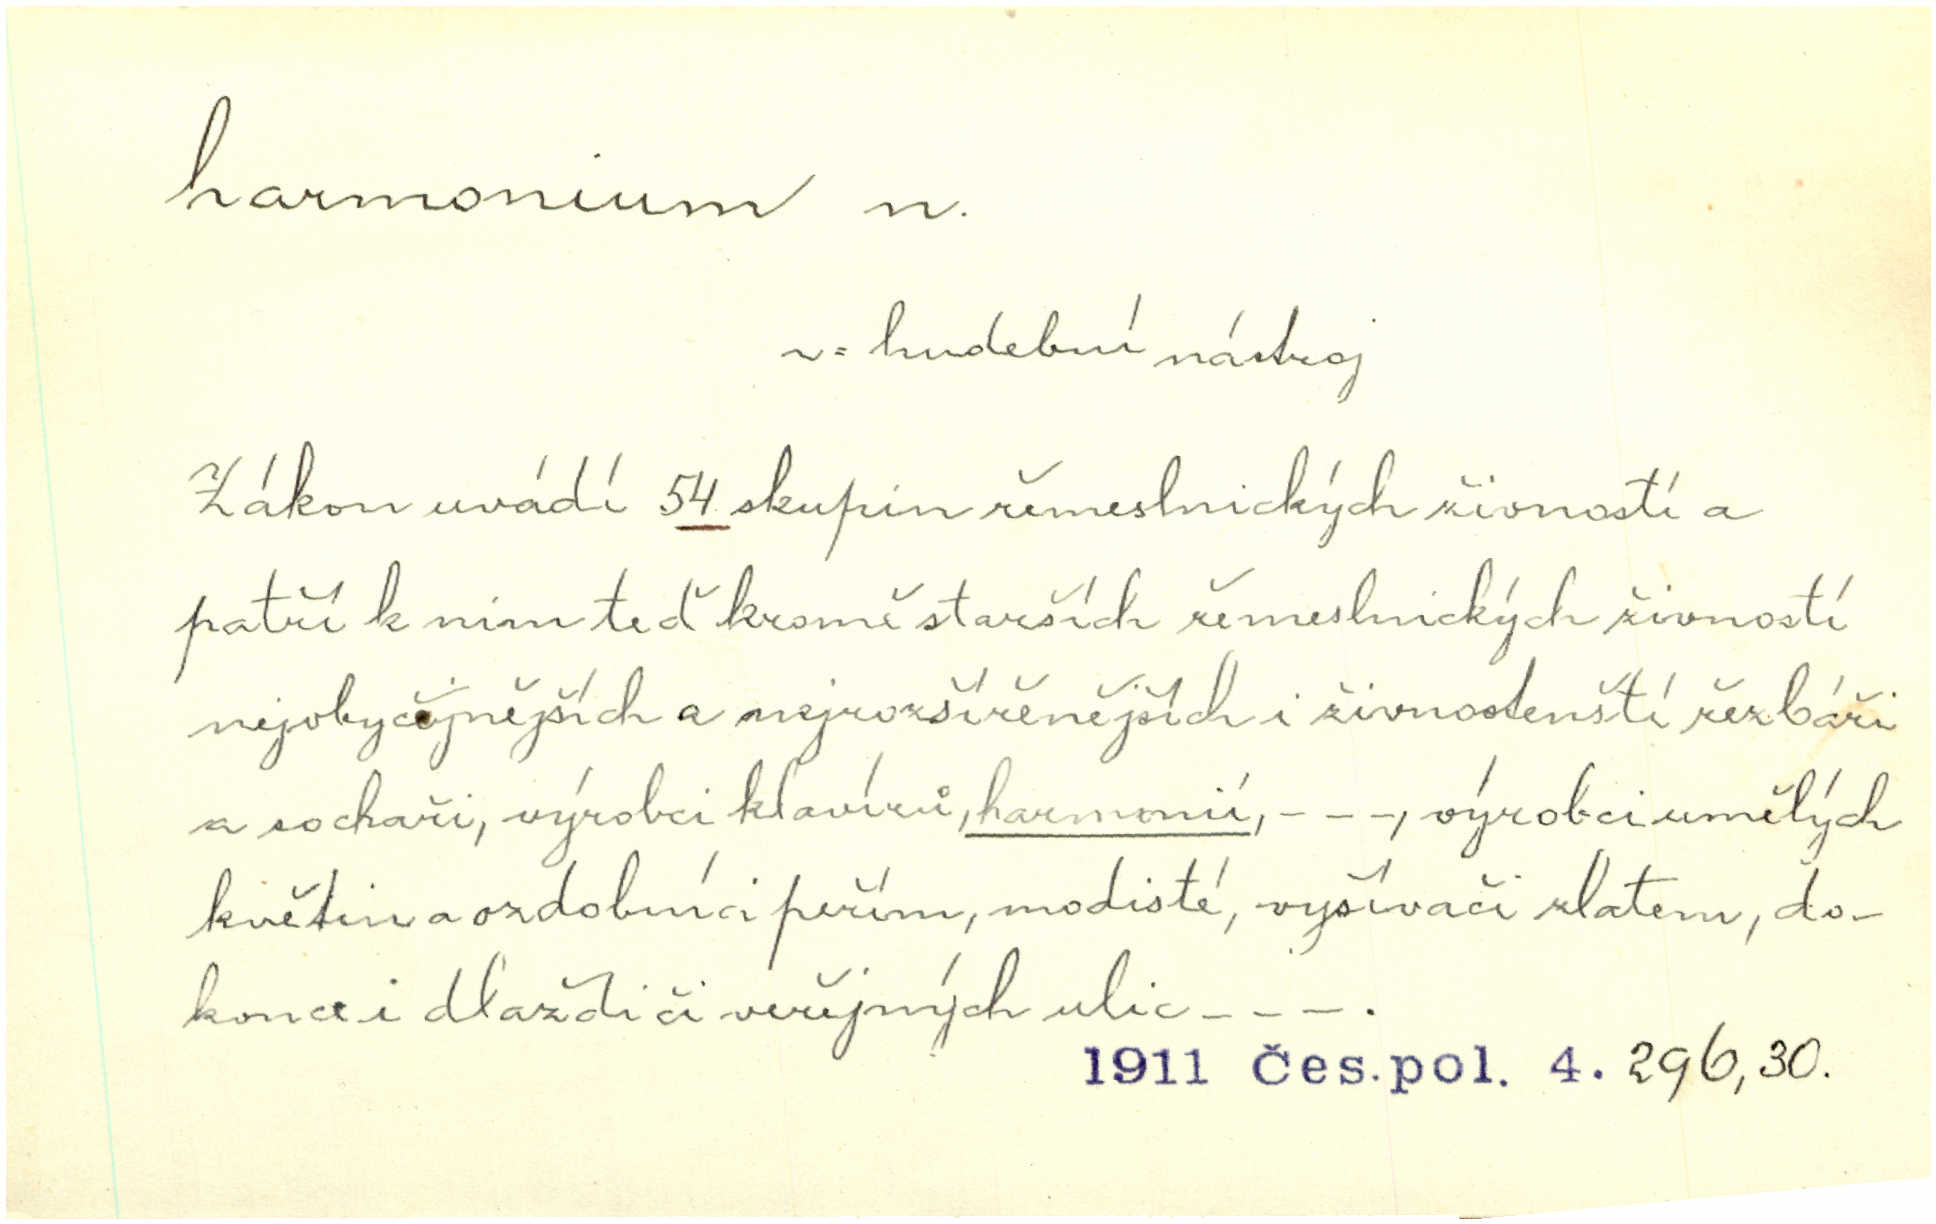 harmonium n.
~ = hudební nástroj
Zákon uvádí 54 skupin řemeslnických živností a
patří k nim teď kromě starších řemeslnických živností
nejobyčejnějších a nejrozšířenějších i živnostenští řezbáři
a sochaři, výrobci klavírů, harmonií, - - -, výrobci umělých
květin a ozdobníci peřím, modisté, vyšívači zlatem, do-
konce i dlaždiči veřejných ulic - - - .
1911 Čes. pol. 4. 296, 30.